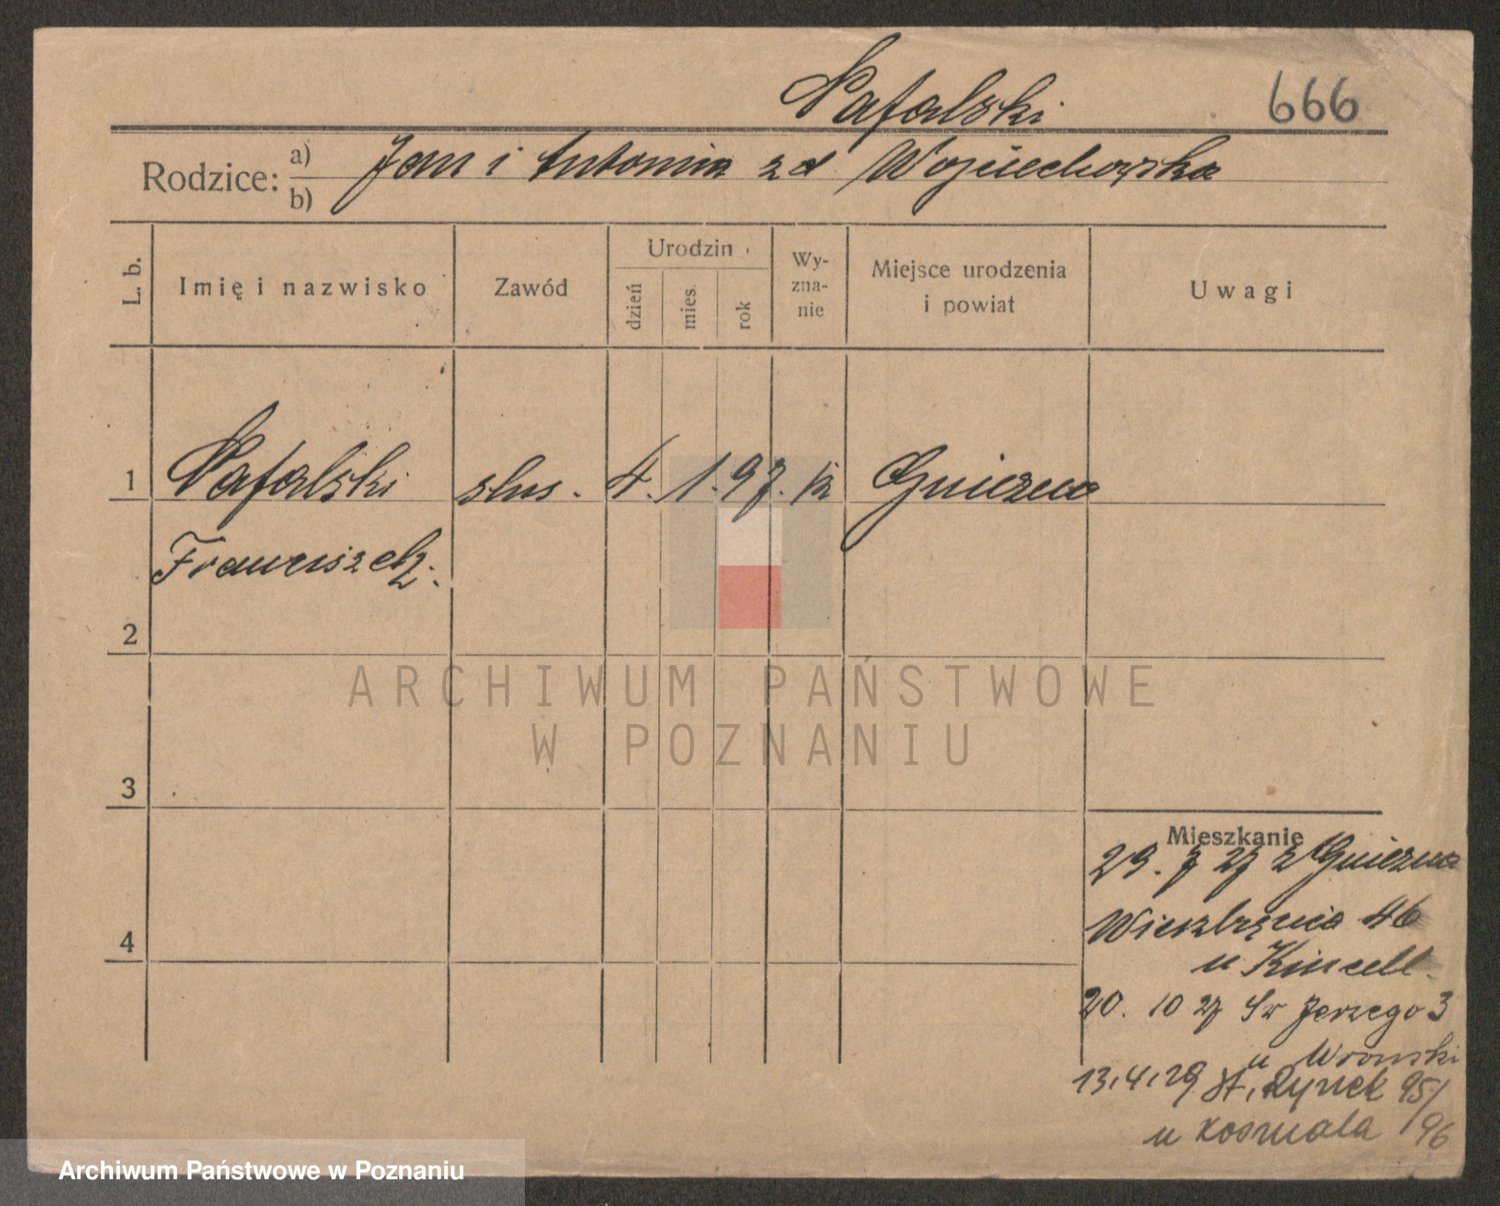 Rafalski 666
Rodzice: a) Jan i Antonina zd Wojciechowska
b)
L. b. Imię i nazwisko Zawód Urodzin dzień mies. rok Wyznanie Miejsce urodzenia i powiat Uwagi
1 Rafalski ślus. 4. 1. 97. k Gniezno
Franciszek.
2
ARCHIWUM PAŃSTWOWE
W POZNANIU
3
Mieszkanie
29. 7 27 z Gniezna
4 Wierzbięcice 46
u
20. 10 27 Św Jerzego 3
u Wronski
13.4.29 St. Rynek 95/
96
u Kosmala
Archiwum Państwowe w Poznaniu